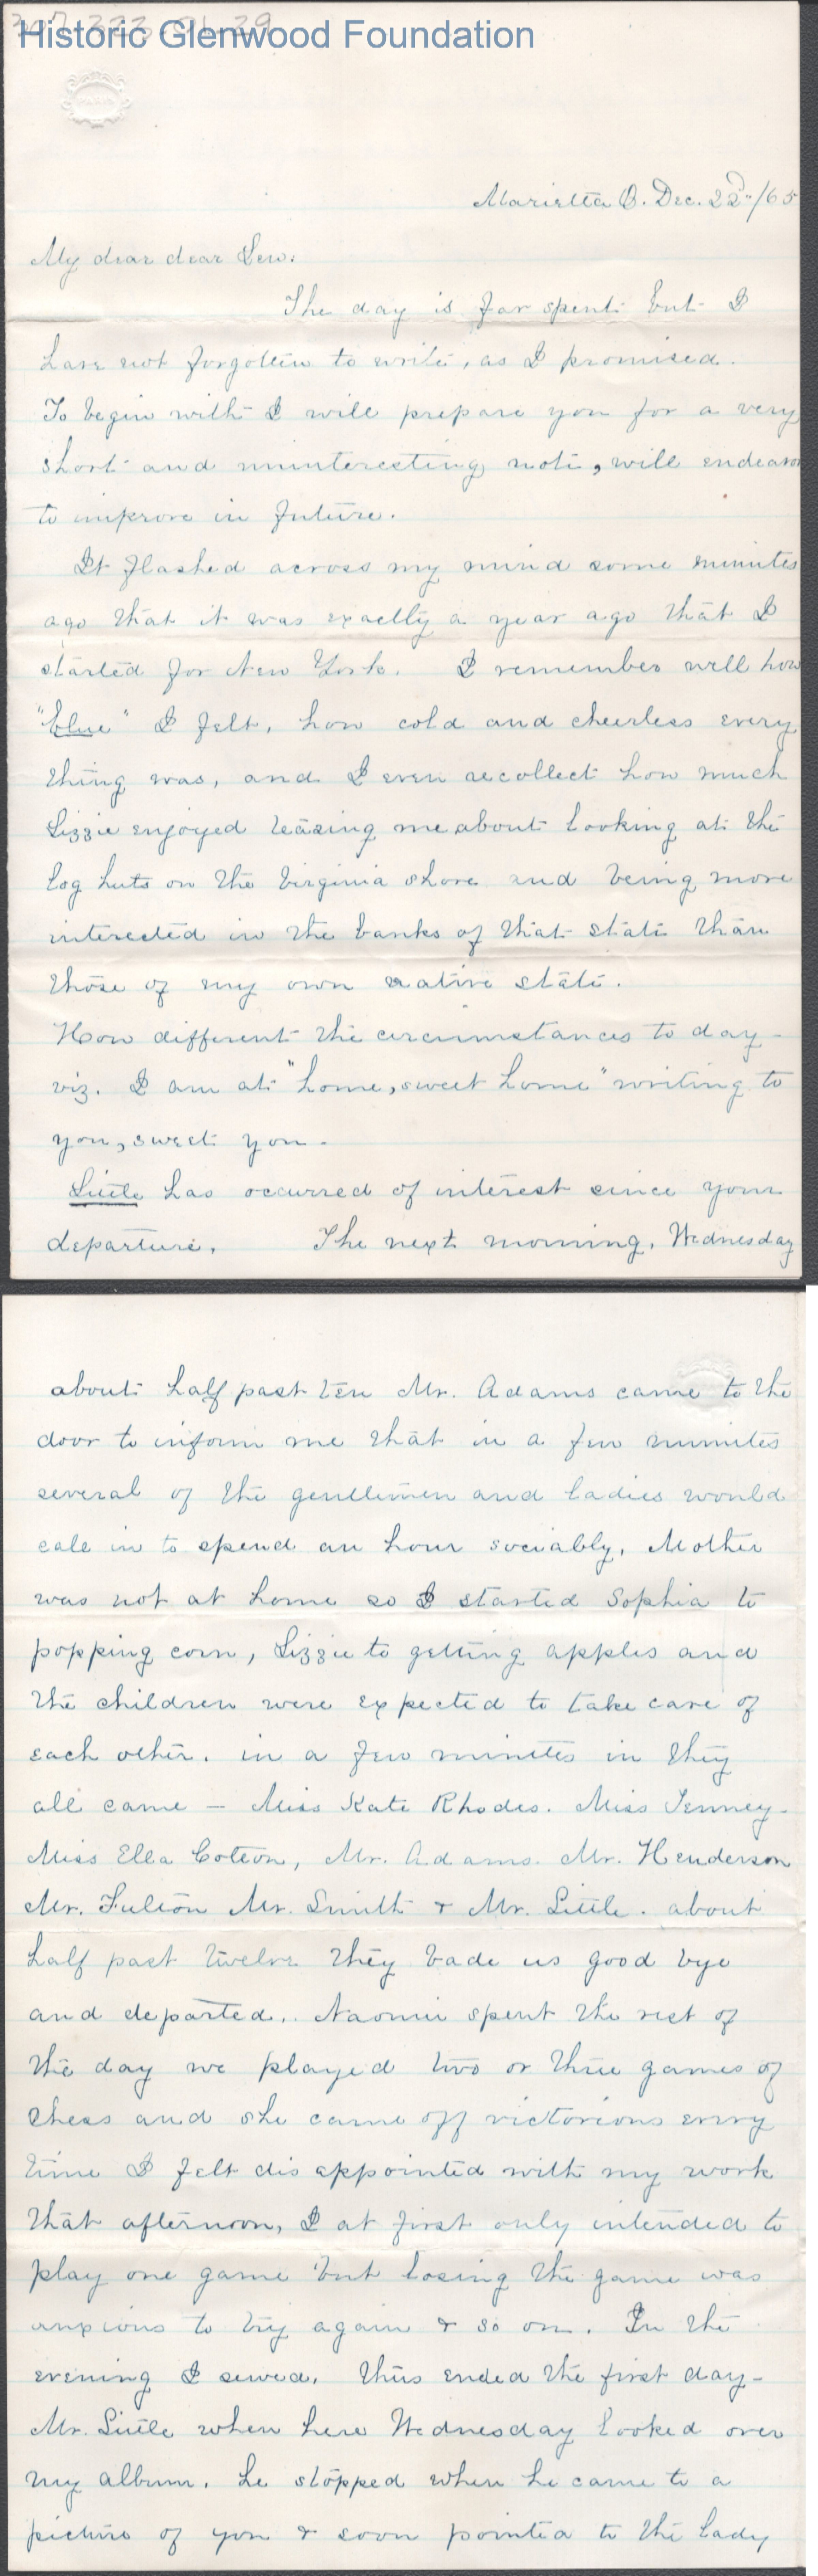 207.323.01.29
Historic Glenwood Foundation
PARIS
Marietta O. Dec. 22d/65
My dear dear Lew.
The day is far spent but I
have not forgotten to write, as I promised.
To begin with I will prepare you for a very
short and uninteresting note, will endeavor
to improve in future.
It flashed across my mind some minutes
ago that it was exactly a year ago that I
started for New York. I remember well how
"blue" I felt, how cold and cheerless every
thing was, and I even recollect how much
Lizzie enjoyed teasing me about looking at the
log huts on the Virginia shore and being more
interested in the banks of that state than
those of my own native state.
How different the circumstances to day-
viz. I am at "home, sweet home" writing to
you, sweet you-
Little has occurred of interest since your
departure. The next morning, Wednesday
about half past ten Mr. Adams came to the
door to inform me that in a few minutes
several of the gentlemen and ladies would
call in to spend an hour sociably, Mother
was not at home so I started Sophia to
popping corn, Lizzie to getting apples and
the children were expected to take care of
each other. in a few minutes in they
all came - Miss Kate Rhodes. Miss Tenney-
Miss Ella Cotton, Mr. Adams. Mr. Henderson
Mr. Fulton Mr. Smith & Mr. Little. about
half past twelve they bade us good bye
and departed. Naomi spent the rest of
the day we played two or three games of
chess and she came off victorious every
time I felt disappointed with my work
that afternoon, I at first only intended to
play one game but losing the game was
anxious to try again & so on. In the
evening I sewed. thus ended the first day-
Mr. Little when here Wednesday looked over
my album. he stopped when he came to a
picture of you & soon pointed to the lady